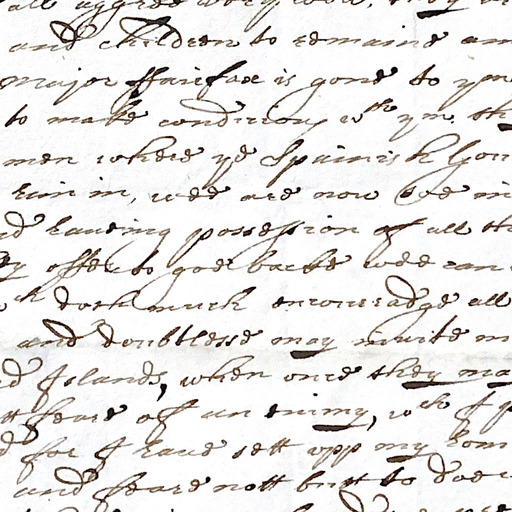 all aggree very well, they
and children to remaine am
Major ffairfax is gone to ym
to make condicions wth ym, th
men where ye Spainish Gou
runn in, wee are now soe m
having possession of all th
offer to goe backe wee can
ch doth much encouradge all
and doubtlesse may invite m
Islands, when once they ma
tt feare of an enimy, wch I p
d for I have sett upp my hom
and feare nott butt to doe